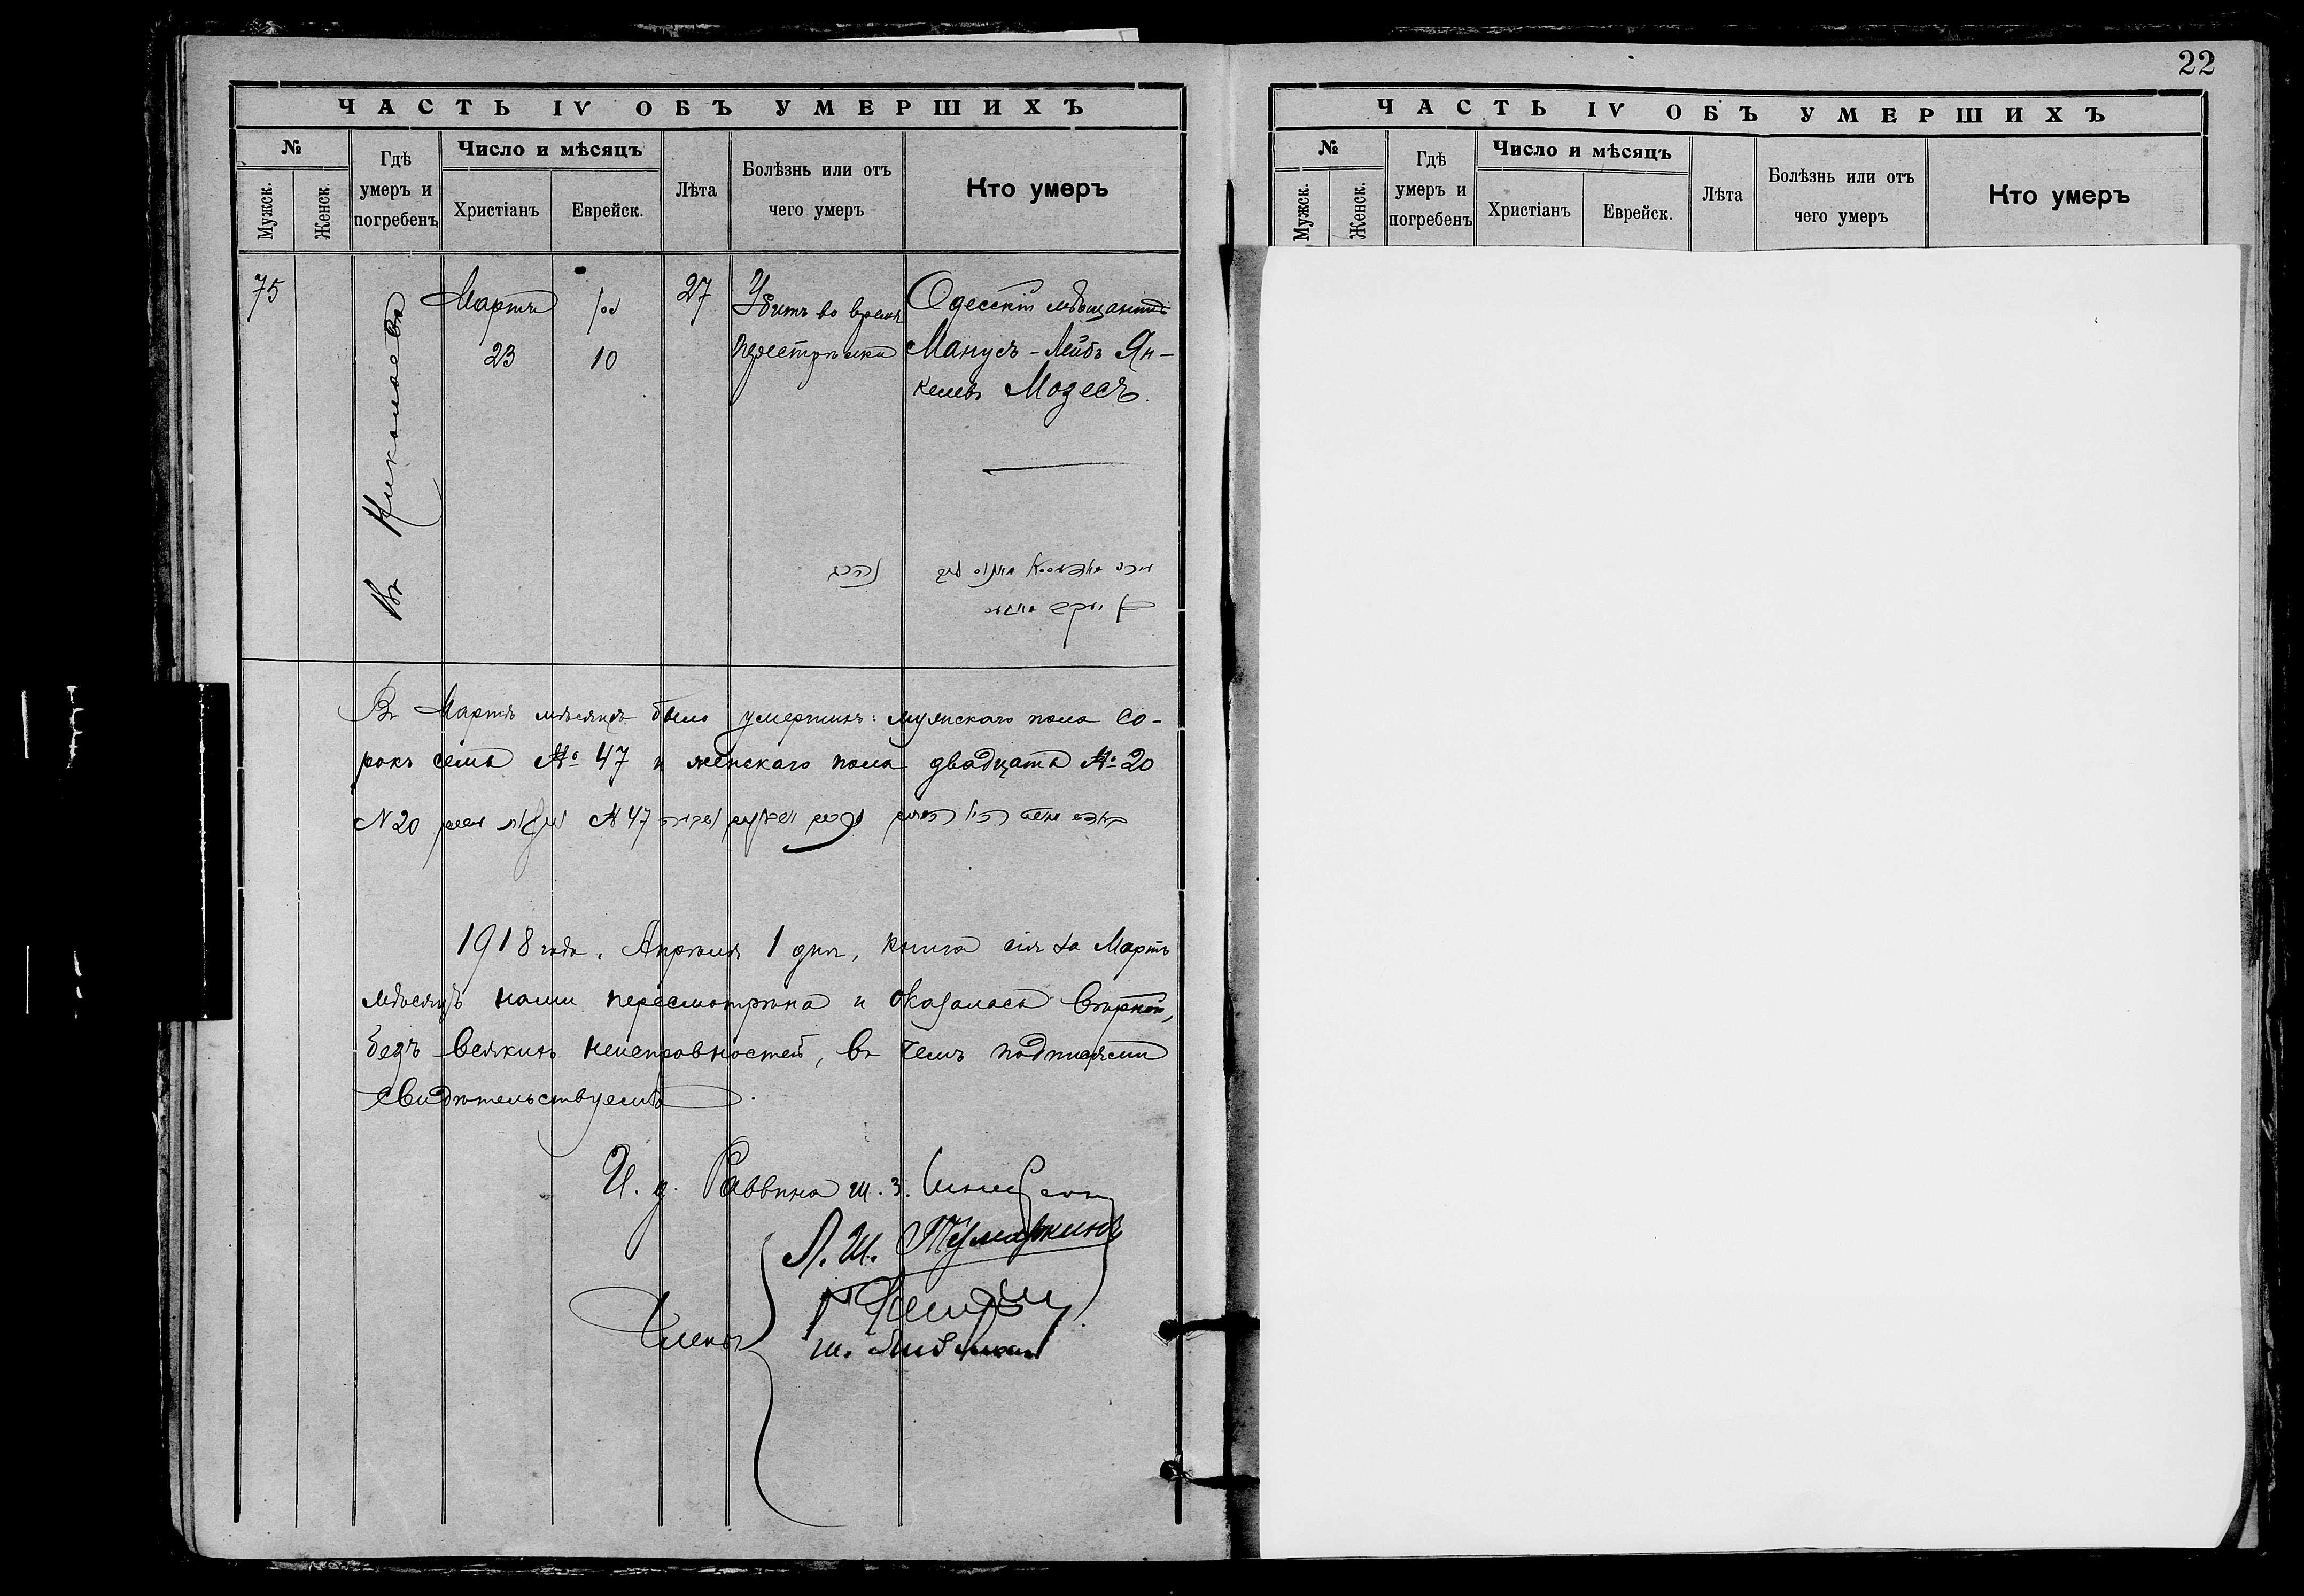 22
ЧАСТЬ IV ОБЪ УМЕРШИХЪ
№
Мужск.
Женск.
Гдѣ
умеръ и
погребенъ
Число и мѣсяцъ
Христіанъ
Еврейск.
Лѣта
Болѣзнь или отъ
чего умеръ
Кто умеръ
75
Въ Николаевѣ
Мартъ
23
ניסן
10
27
Убитъ во время
перестрѣлки
Одесскій мѣщанинъ
Манусъ-Лейбъ Ян-
келевъ Мозесъ.
נהרג
Въ Мартѣ мѣсяцѣ было умершихъ: мужскаго пола со-
рокъ семь № 47 и женскаго пола двадцать № 20
N 20 № 47
1918 года, Апрѣля 1 дня, книга сія за Мартъ
мѣсяцъ нами пересмотрѣна и оказалась вѣрной,
безъ всякихъ неисправностей, въ чемъ подписями
свидѣтельствуемъ.
И. д. Раввина Ш. З.
Л. Ш. Тумаркинъ
Члены
Ш.
ЧАСТЬ IV ОБЪ УМЕРШИХЪ
№
Мужск.
Женск.
Гдѣ
умеръ и
погребенъ
Число и мѣсяцъ
Христіанъ
Еврейск.
Лѣта
Болѣзнь или отъ
чего умеръ
Кто умеръ